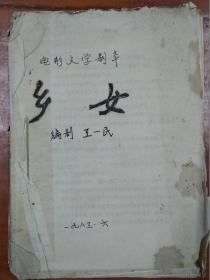 电影文学剧本
乡女
编剧 王一民
一九八三.六